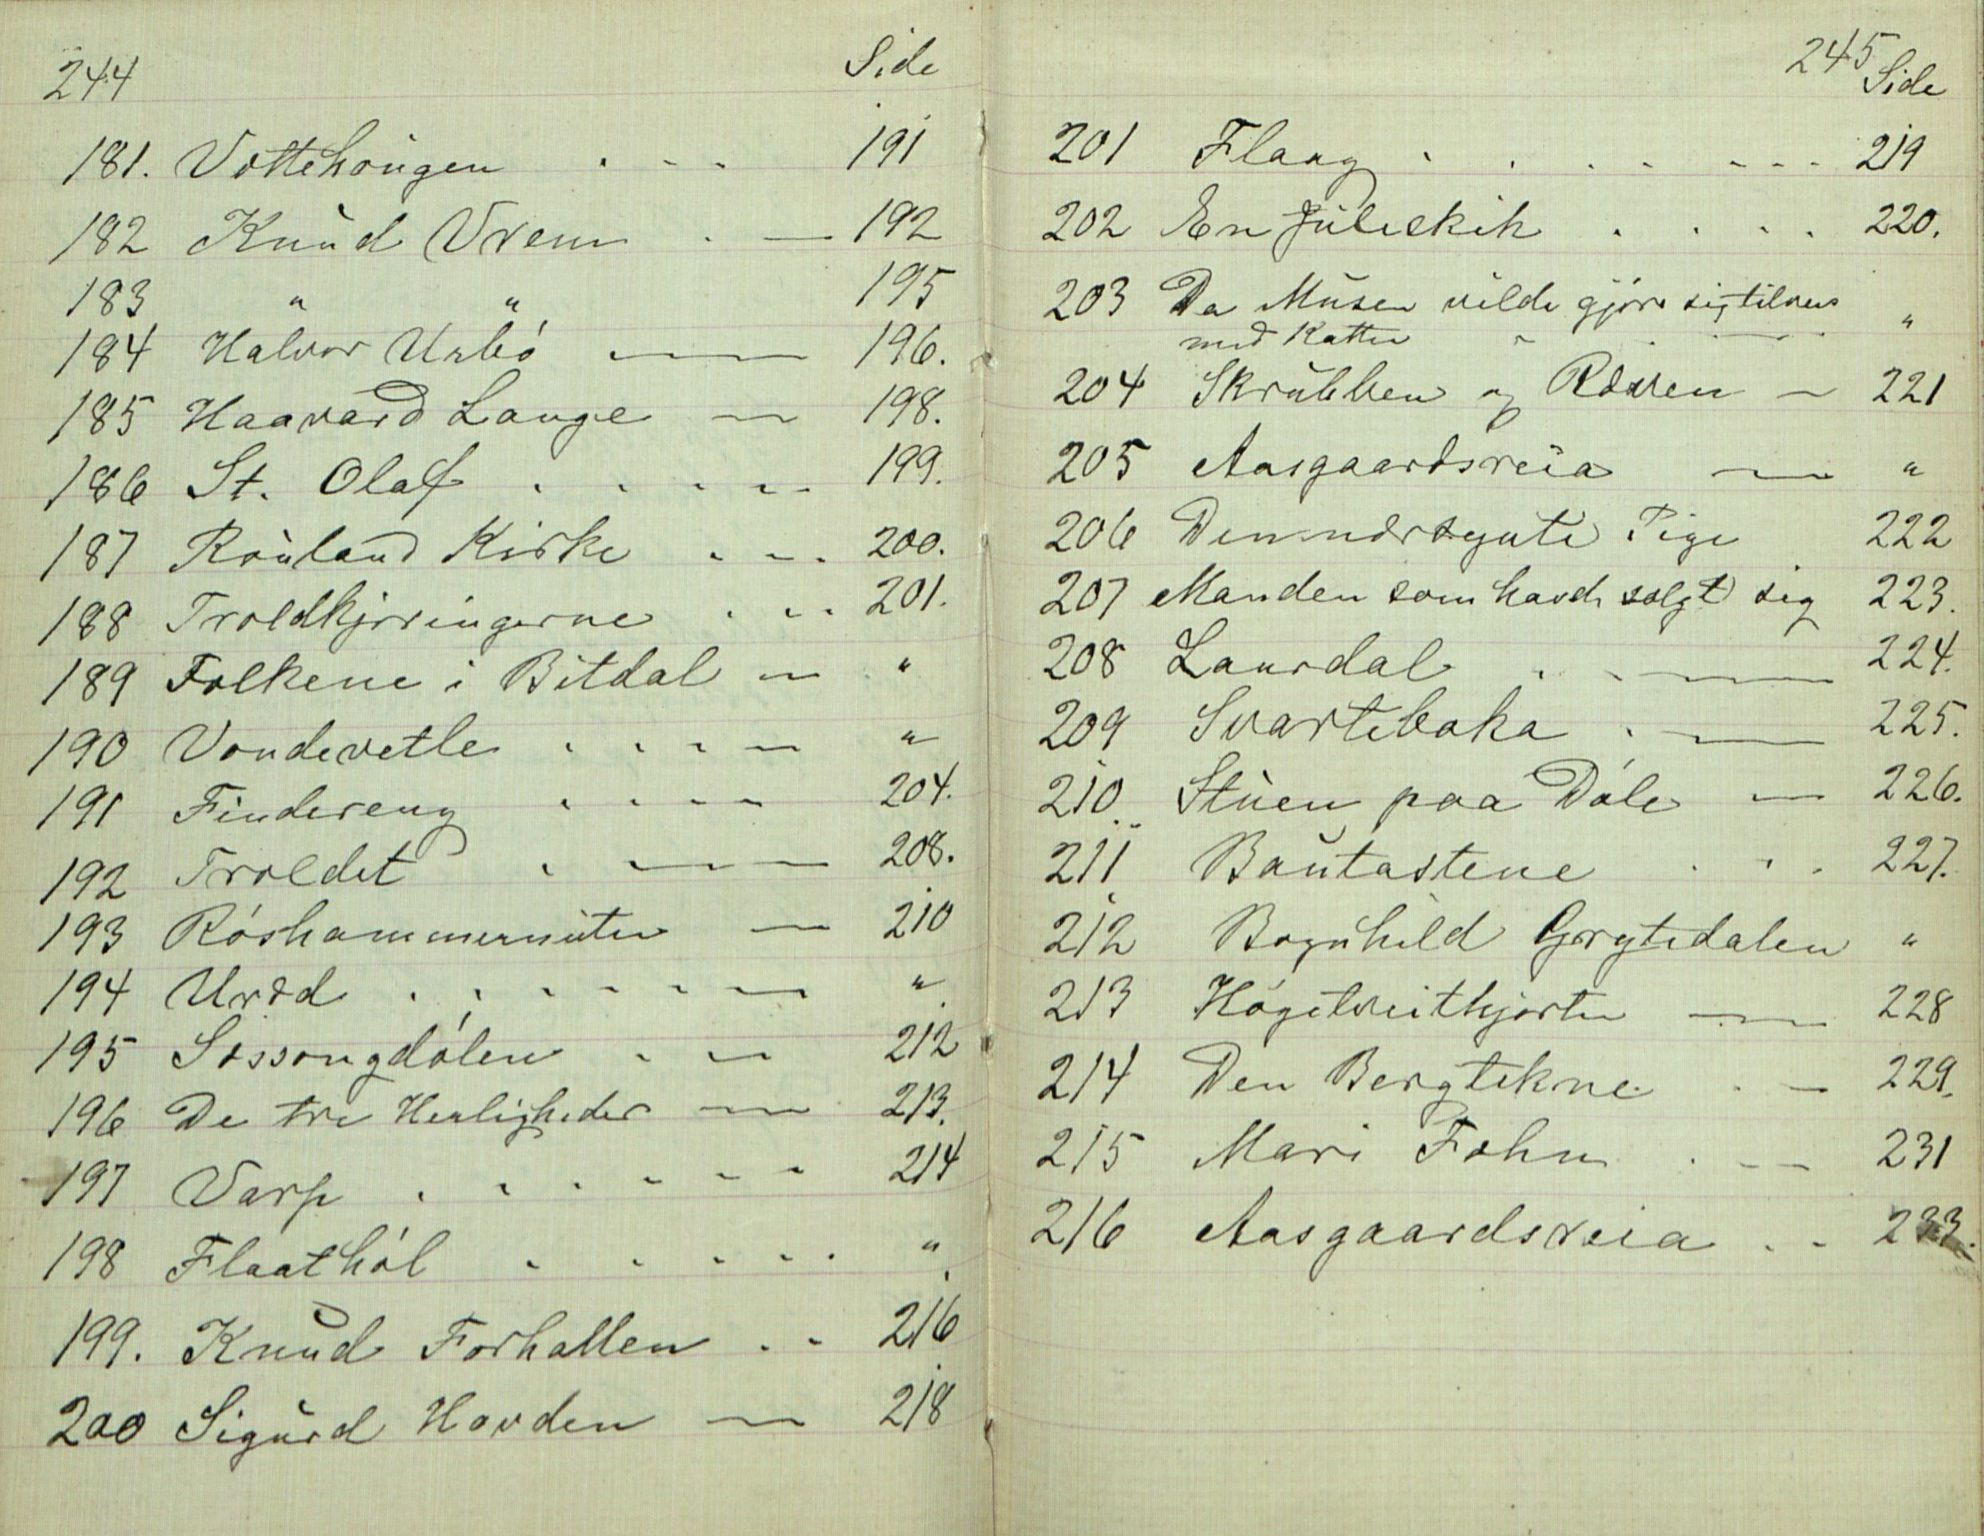 244
Side
181. Vottehougen . - - - 191
182 Knud Vrem . — 192
183 " " 195
184 Halvor Urbö — 196.
185 Haavard Lange — 198.
186 St. Olaf . . . . . 199.
187 Rauland Kirke . . . 200.
188 Troldkjæringerne . . . 201.
189 Folkene i Bitdal — "
190 Vondevetle . . . — "
191 Findereng . . . . 204.
192 Troldet . — 208.
193 Róshammernuten — 210
194 Uræd . . . . . — "
195 Sossongdólen . — 212
196 De tre Herligheder — 213.
197 Varp . . . . . . 214
198 Flaathól . . . . . "
199. Knud Forhallen . . 216
200 Sigurd Hovden — 218
245
Side
201 Flaag . . . . - - - 219
202 En Juleskik . . . . 220.
203 Da Musen vilde gjøre sig tilvens
med Katten . . — "
204 Skrubben og Ræven — 221
205 Aasgaardsreia — "
206 Den mørdsyute Pige 222
207 Manden som havde solgt sig 223.
208 Laurdal . . — 224.
209 Svarteboka . — 225.
210. Stuen paa Dóle — 226.
211 Bautastene . . . 227.
212 Bognhild Grytedalen "
213 Högetveitkjerten — 228
214 Den Bergtekne . — 229.
215 Mari Fohn . — 231
216 Aasgaardsreia . . 233.